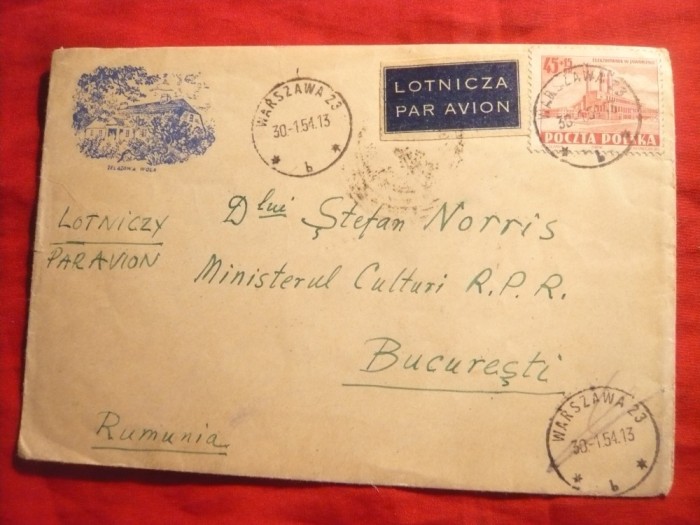 ŻELAZOWA WOLA
WARSZAWA 23
30.-1.54.13
* b *
LOTNICZA
PAR AVION
45+15
ELEKTROWNIA W JAWORZNIE
POCZTA POLSKA
WARSZAWA 23
30.-1.54.13
* b *
LOTNICZY
PAR AVION
Dlui Ștefan Norris
Ministerul Culturi R.P.R.
București
Rumunia
WARSZAWA 23
30.-1.54.13
* b *